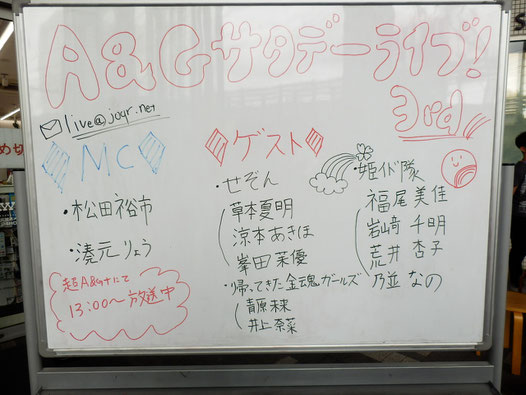 A&Gサタデーライブ!
3rd
live@joqr.net
MC
・松田裕市
・湊元りょう
超A&G+にて
13:00~放送中
ゲスト
・せぞん
草本夏明
涼本あきほ
峯田茉優
・帰ってきた金魂ガールズ
青原未来
井上奈菜
・姫イド隊
福尾美佳
岩﨑千明
荒井杏子
乃並なの